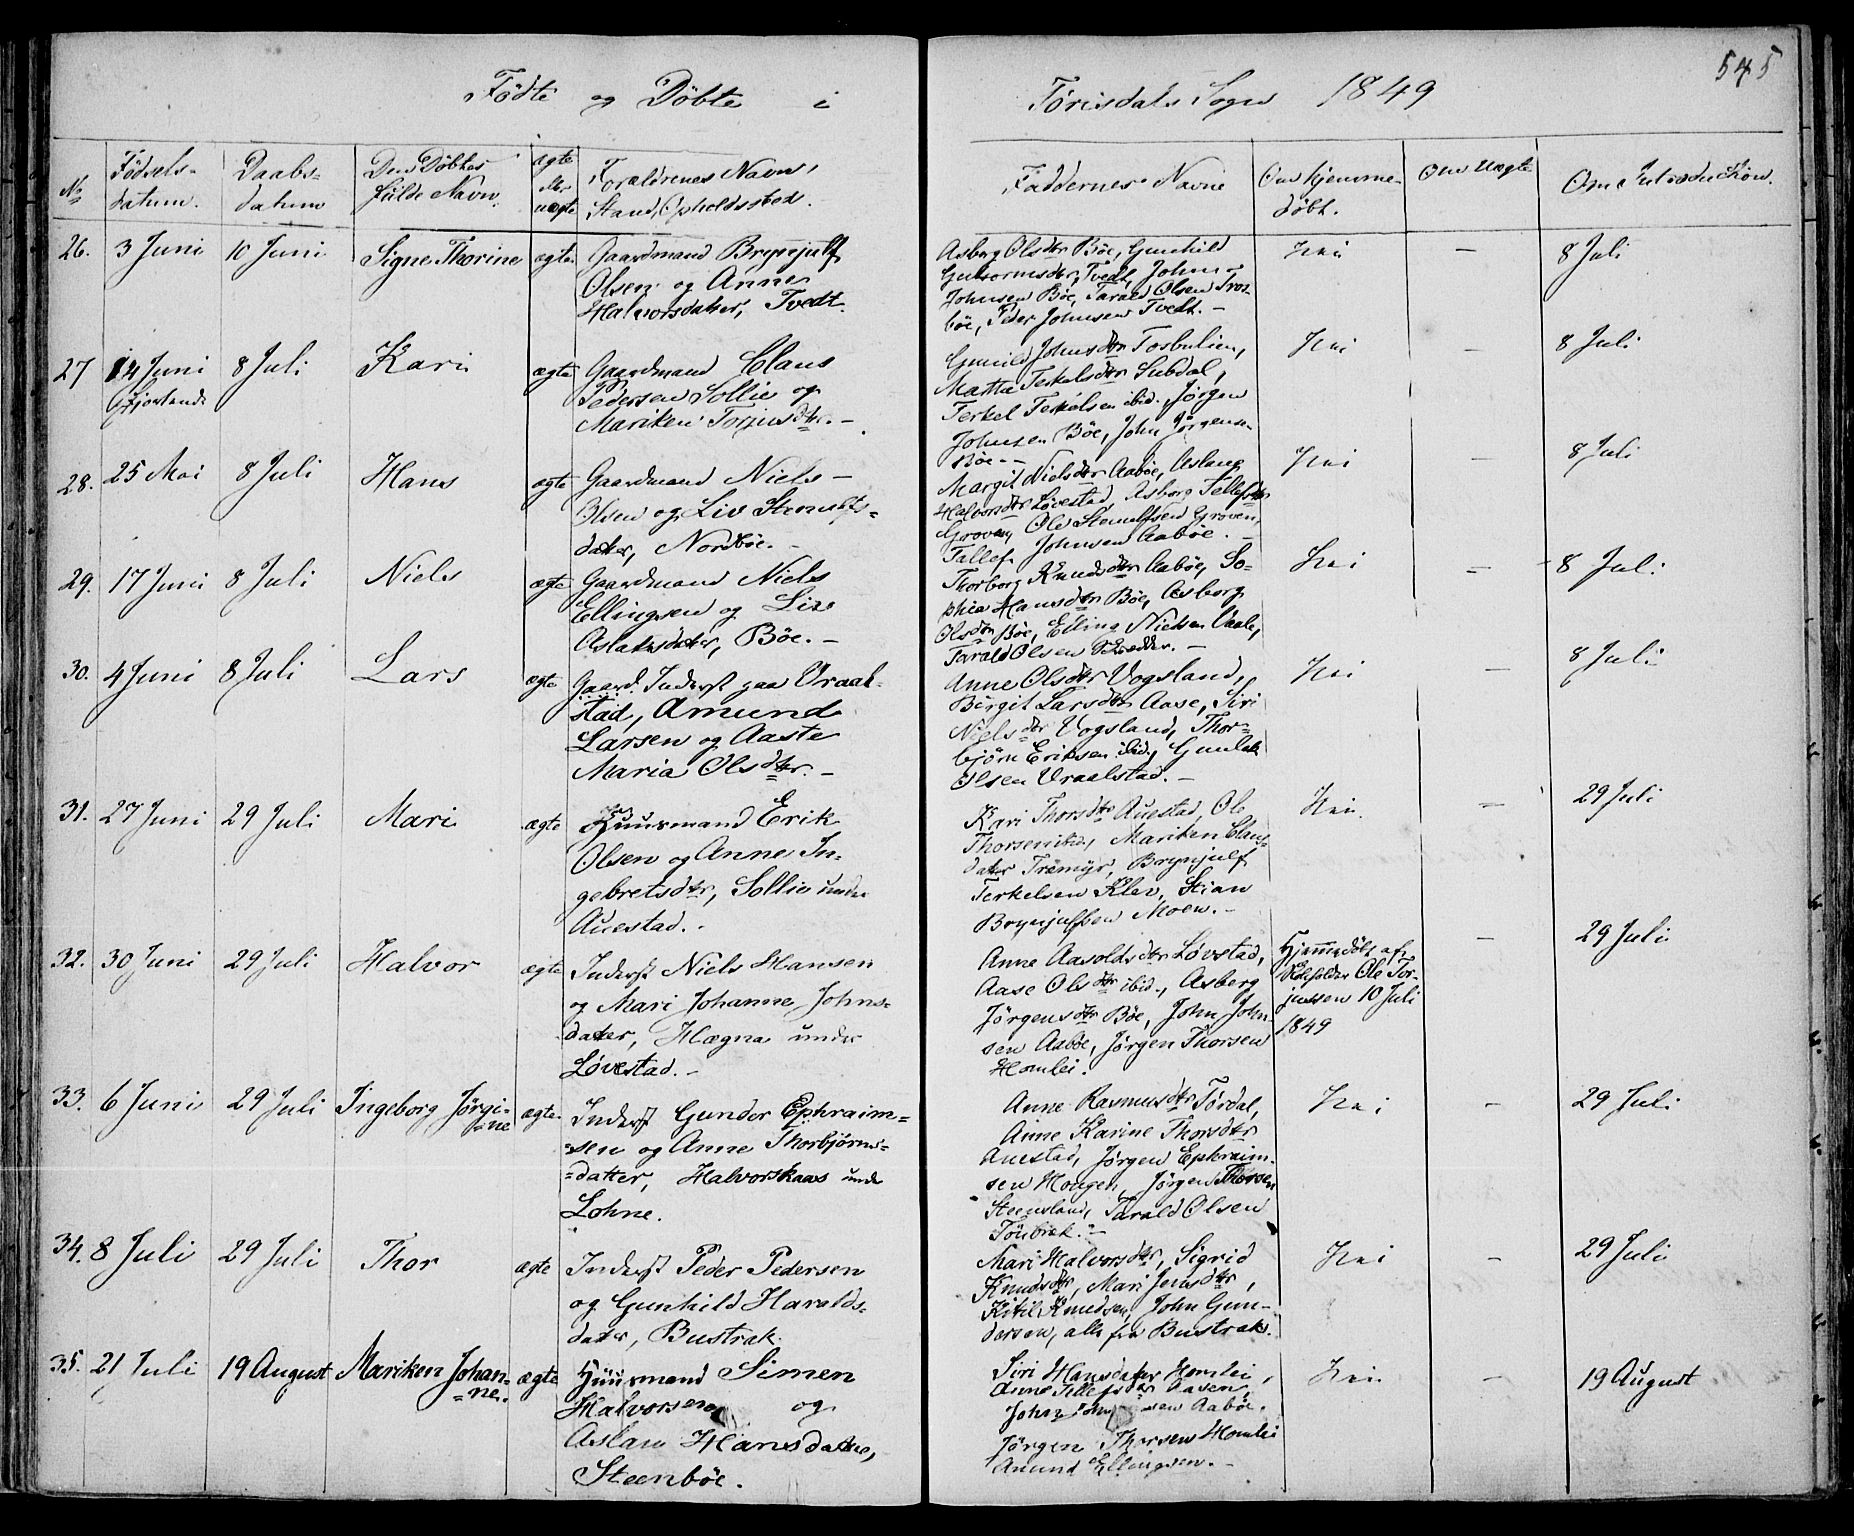 545
Födte og Döbte i Törisdals Sogn 1849
No
Födsels-
datum.
Daabs-
datum
Den Döbtes
fulde Navn.
ægte
eller
uægte
Forældrenes Navn,
Stand, Opholdssted.
Faddernes Navne
Om hjemme-
döbt.
Om Uægte
Om Introduktion.
26. 3 Juni 10 Juni Signe Thorine ægte Gaardmand Brynjulf
Olsen og Anne
Halvorsdatter, Tvedt.
Asborg Olsdtr Böe, Gunhild
Guttormsdtr, Tvedt, John
Johnsen Böe, Tarald Olsen Tros-
böe, Peder Johnsen Tvedt. -
Nei - 8 Juli
27 14 Juni 8 Juli Kari ægte Gaardmand Claus
Pedersen Sollie og
Mariken Torjusdtr. -
Gunild Johnsdtr
Terkelsdtr Lubdal,
Terkel Terkelsen ibid., Jörgen
Johnsen Böe, John Jörgensen
Böe. -
Nei - 8 Juli
28. 25 Mai 8 Juli Hans ægte Gaardmand Niels
Olsen og Liv Stenulfs-
datter, Nordböe. -
Margit Nielsdtr Aaböe, Aslaug
Halvorsdtr Lövestad, Asborg Tellefsdtr
Groven, Ole Stenulfsen Groven,
Tallef Johnsen Aaböe. -
Nei - 8 Juli
29. 17 Juni 8 Juli Niels ægte Gaardmand Niels
Ellingsen og Liv
Aslaksdatter, Böe. -
Thorborg Knudsdtr Aaböe, So-
phia Hansdtr Böe, Asborg
Olsdtr Böe, Elling Nielsen Vaale,
Tarald Olsen -
Nei - 8 Juli
30. 4 Juni 8 Juli Lars ægte Gaard. Inderst paa Vraal-
stad, Amund
Larsen og Aaste
Maria Olsdtr. -
Anne Olsdtr Vogsland,
Birgit Larsdtr Aase, Siri
Nielsdtr Vogsland, Thor-
björn Eriksen ibid., Gunlek
Olsen Vraalstad. -
Nei - 8 Juli
31. 27 Juni 29 Juli Mari ægte Huusmand Erik
Olsen og Anne In-
gebretsdtr, Sollie under
Auestad. -
Kari Thorsdtr Auestad, Ole
Thorsen ibid., Mariken Claus-
datter Trömyr, Brynjulf
Terkelsen Klev, Stian
Brynjulfsen Moen. -
Nei. - 29 Juli
32. 30 Juni 29 Juli Halvor ægte Inderst Niels Hansen
og Mari Johanne Johns-
datter, Hægna under
Lövestad. -
Anne Aasoldsdtr Lövstad,
Aase Olsdtr ibid., Asberg
Jörgensdtr Böe, John John-
sen Aaböe, Jörgen Thorsen
Homlei.
Hjemmedöbt af
Ole Tor-
jussen 10 Juli
1849
- 29 Juli
33. 6 Juni 29 Juli Ingeborg Jörgi-
=ne ægte Inderst Gunder Ephraim-
=sen og Anne Thorbjörns-
=datter, Halvorskaas under
Lohne.
Anne Rasmusdtr Tördal,
Anne Karine Thorsdtr
Auestad, Jörgen Ephraim-
sen Mougen, Jörgen Thorsen
Steensland, Tarald Olsen
Tönbræk. -
Nei - 29 Juli
34. 8 Juli 29 Juli Thor ægte Inderst Peder Pedersen
og Gunhild Haralds-
datter, Bustrak.
Mari Halvorsdtr, Sigrid
Knudsdtr, Mari Jensdtr,
Kitil Knudsen, John Gun-
dersen, alle fra Bustrak.
Nei - 29 Juli
35. 21 Juli 19 August Mariken Johan-
=ne. ægte Huusmand Simen
Halvorsen og
Aslau Hansdatter,
Steenböe.
Siri Hansdatter Homlei,
Anne Tellefsdtr Aasen,
John Aaböe.
Jörgen Thorsen Homlei
Amund Ellingsen. -
Nei - 19 August